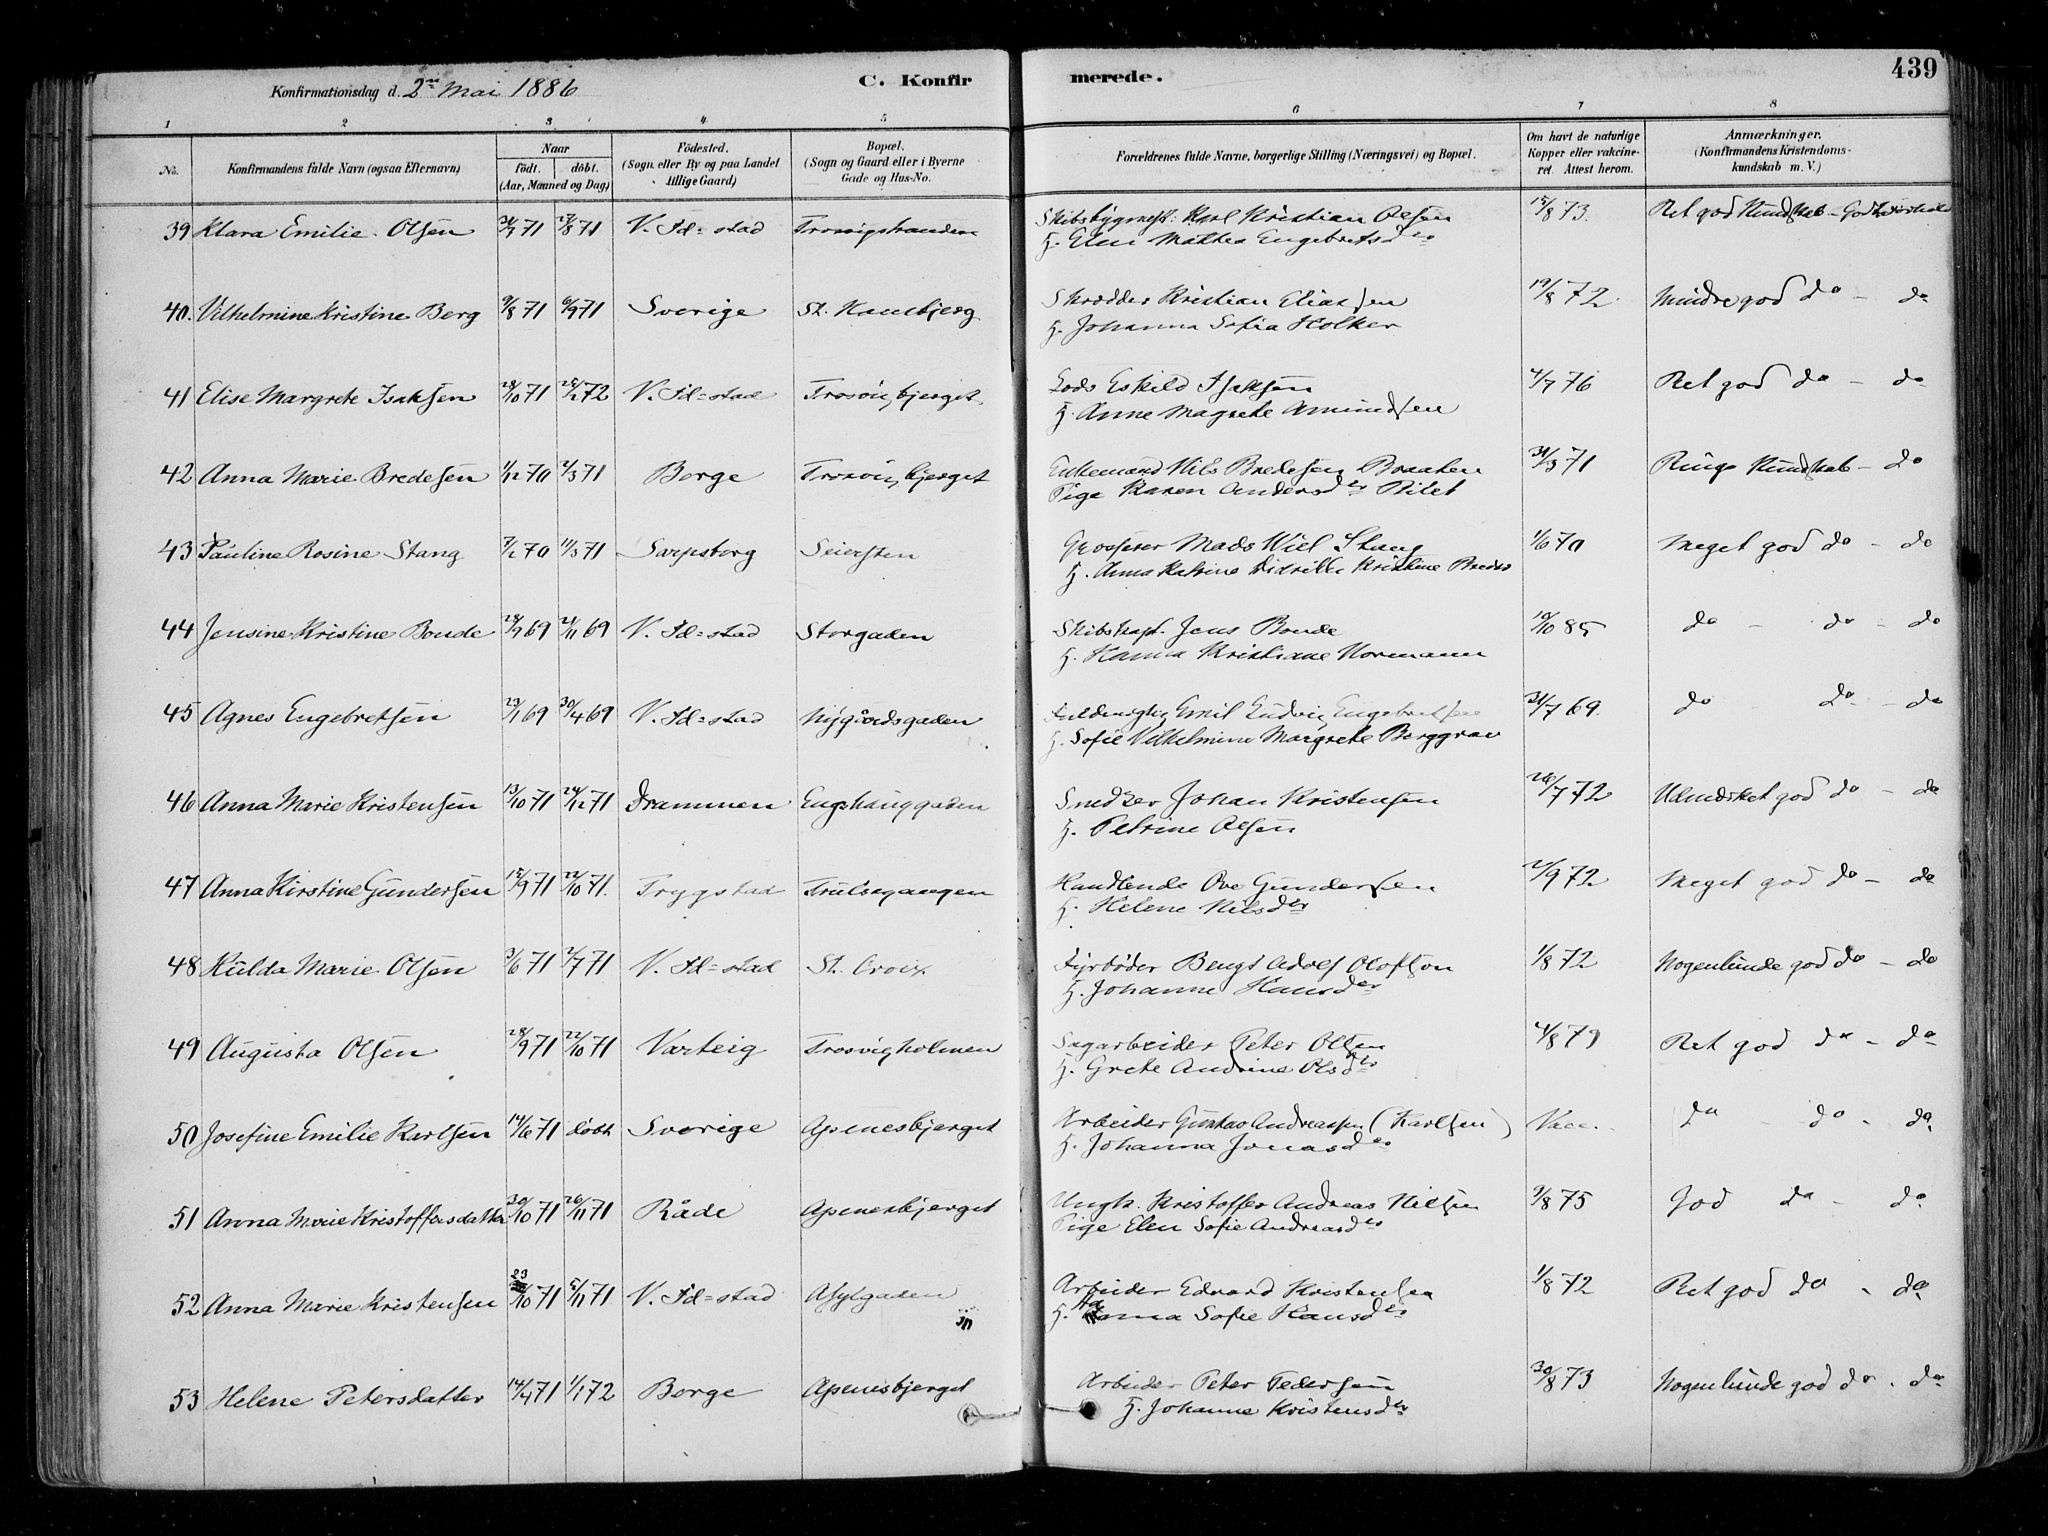 Konfirmationsdag d. 2en Mai 1886 C. Konfir merede. 439
1 2 3 4 5 6 7 8
No. Konfirmandens fulde Navn (ogsaa Efternavn) Naar födt. döbt. (Aar, Maaned og Dag) Födested. (Sogn eller By og paa Landet tillige Gaard) Bopæl. (Sogn og Gaard eller i Byerne Gade og Hus-No. Forældrenes fulde Navne, borgerlige Stilling (Næringsvei) og Bopæl. Om havt de naturlige Kopper eller vakcineret. Attest herom. Anmærkninger. (Konfirmandens Kristendomskundskab m. V.)
39 Klara Emilie Olsen 71 27/8 71 V. Fd=stad Skibsbygmest: Karl Kristian Olsen 15/8 73. Ret god Kundskab - God
H. Elen Mathea Engebretsder
40. Vilhelmine Kristine Berg 9/8 71 6/9 71 Sverige St. Hansbjerg Skrædder Kristian Eliassen 19/8 72. Mindre god do - do
H. Johanna Sofia Holker
41 Elise Margrete Isaksen 28/10 71 72 V. Fd=stad Trosvigbjerget. Lods Eskild Isaksen 4/7 76 Ret god do - do
H. Anne Magrete Amundsen
42 Anna Marie Bredesen 1/12 70 2/3 71 Borge Trosvigbjerget Enkemand Nils Bredesen Braaten 31/3 71 Ringe Kundskab - do
Pige Karen Andersder
43 Pauline Rosine Stang 70 11/3 71 Sarpsborg Seiersten Grosserer Mads Wiel Stang 1/6 70 Meget god do - do
H. Anna Katrine Kristine
44 Jensine Kristine Bonde 69 21/11 69 V. Fd=stad Storgaden Skibskapt. Jens Bonde 10/10 85 do - do - do
H. Hanna Kristiane Normann
45 Agnes Engebretsen 23/1 69 30/4 69 V. Fd=stad Nygårdsgaden Emil Ludvig Engebretsen 31/7 69. do do - do
H. Sofie Vilhelmine Margrete Berggrav
46 Anna Marie Kristensen 13/10 71 24/12 71 Drammen Engshauggaden Snedker Johan Kristensen 26/7 72 Udmærket god do - do
H. Petrine Olsen
47 Anna Kirstine Gundersen 15/9 71 22/10 71. Trygstad Trulsegangen Handlende Ove Gundersen 2/9 72 Meget god do - do
H. Helene Nilsder
48 Hulda Marie Olsen 3/6 71 2/7 71 V. Fd=stad St. Croix Fyrbøder Bengt Adolf Olofsson 1/8 72 Nogenlunde god do - do
H. Johanne Hansder
49 Augusta Olsen 28/9 71 22/10 71 Varteig Trosvigholmen Sagarbeider Peter Olsen 4/8 79 Ret god do - do
H. Grete Andrine Olsder
50 Josefine Emilie Karlsen 14/6 71 döbt Sverige Apenesbjerget Arbeider Gustav Andreassen (Karlsen) Vacc. do - do - do.
H. Johanna Jonasder
51 Anna Marie Kristoffersdatter 30/10 71 26/11 71 Råde Apenesbjerget Ungk. Kristoffer Andreas Nilsen 9/8 75 God do - do
Pige Elen Sofie Andreasder
52 Anna Marie Kristensen 23/10 71 5/11 71 V. Fd=stad Asylgaden Arbeider Edvard Kristensen 1/8 72 Ret god do - do
H. Sofie Hansder
53 Helene Petersdatter 14/4 71 1/1 72 Borge Apenesbjerget Arbeider Peter Pedersen 30/8 73 Nogenlunde god do - do
H. Johanne Kristensder